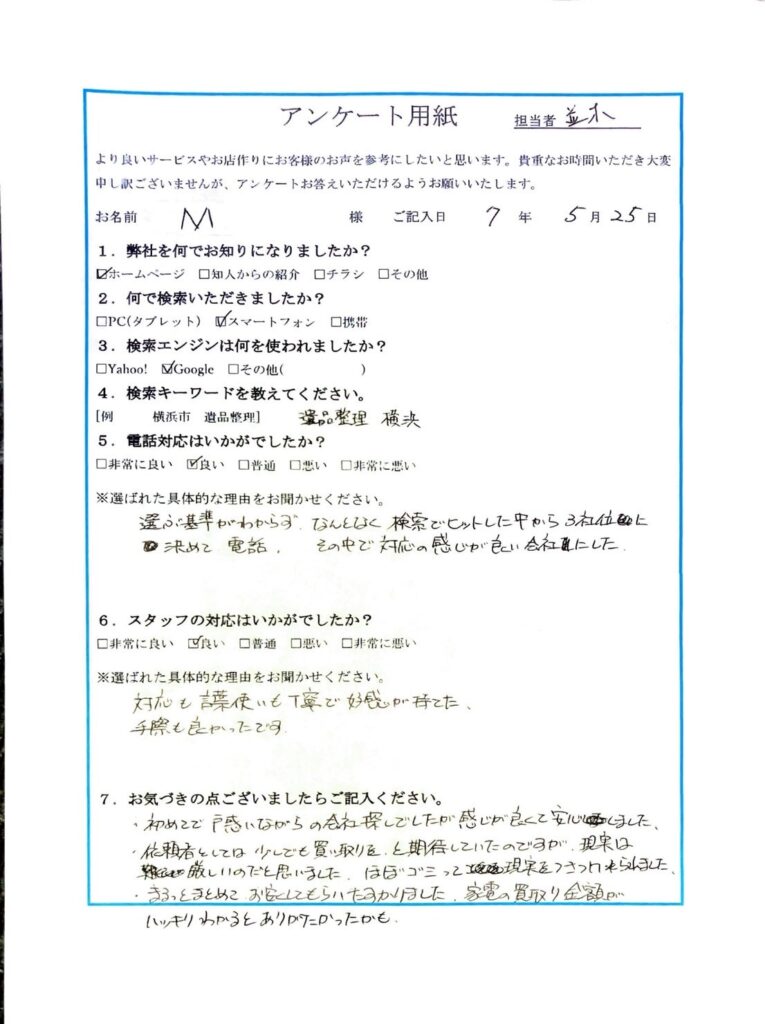 アンケート用紙 担当者 並木
より良いサービスやお店作りにお客様のお声を参考にしたいと思います。貴重なお時間いただき大変
申し訳ございませんが、アンケートお答えいただけるようお願いいたします。
お名前 M 様 ご記入日 7 年 5 月 25 日
1．弊社を何でお知りになりましたか？
☑ホームページ □知人からの紹介 □チラシ □その他
2．何で検索いただきましたか？
□PC(タブレット) ☑スマートフォン □携帯
3．検索エンジンは何を使われましたか？
□Yahoo! ☑Google □その他( )
4．検索キーワードを教えてください。
[例 横浜市 遺品整理] 遺品整理 横浜
5．電話対応はいかがでしたか？
□非常に良い ☑良い □普通 □悪い □非常に悪い
※選ばれた具体的な理由をお聞かせください。
選ぶ基準がわからず、なんとなく検索でヒットした中から3社位に
決めて電話、その中で対応の感じが良い会社にした。
6．スタッフの対応はいかがでしたか？
□非常に良い ☑良い □普通 □悪い □非常に悪い
※選ばれた具体的な理由をお聞かせください。
対応も言葉使いも丁寧で好感が持てた、
手際も良かったです
7．お気づきの点ございましたらご記入ください。
・初めてで戸惑いながらの会社探しでしたが感じが良くて安心しました、
・依頼者としては少しでも買い取りを、と期待していたのですが、現実は
厳しいのだと思いました、ほぼゴミって現実をつきつけられました、
・まるっとまとめてお安くしてもらいたすかりました、家電の買取り金額が
ハッキリわかるとありがたかったかも、